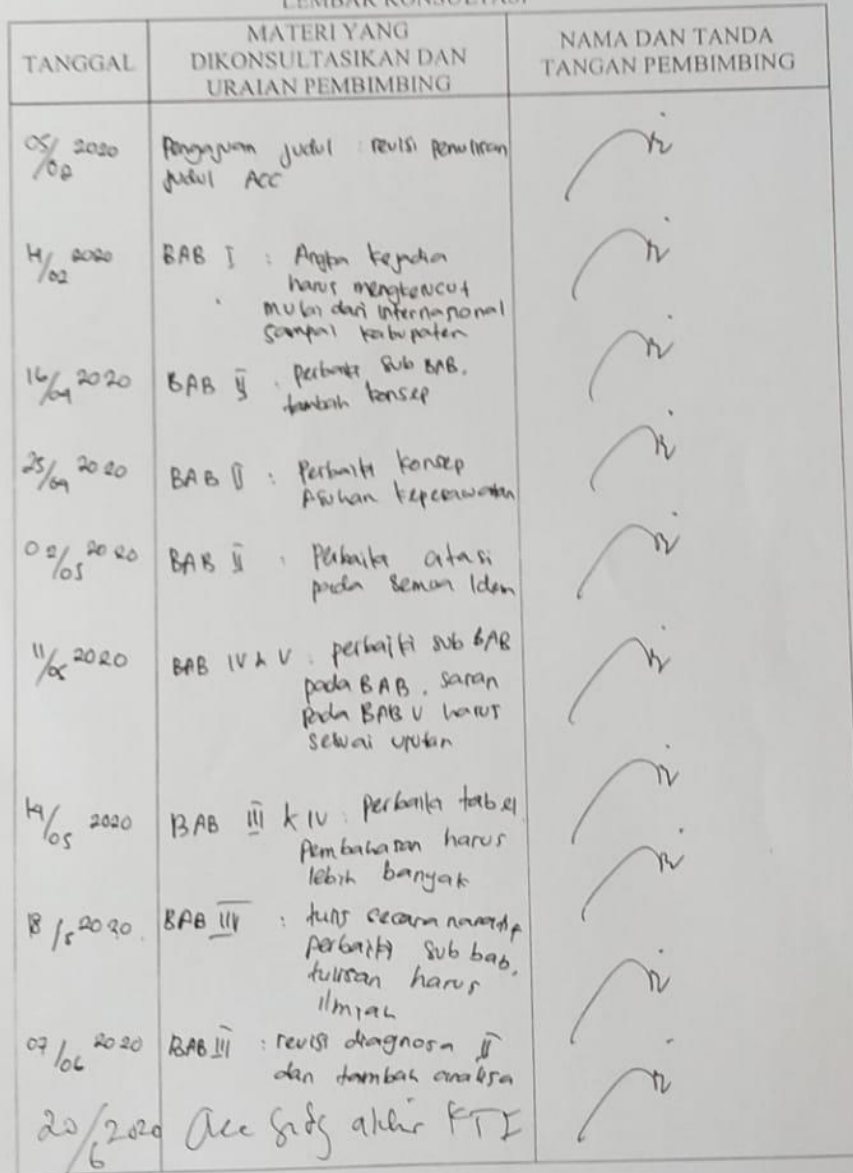 LEMBAR KONSULTASI
TANGGAL
MATERI YANG
DIKONSULTASIKAN DAN
URAIAN PEMBIMBING
NAMA DAN TANDA
TANGAN PEMBIMBING
05/02 2020 Pengajuan judul : revisi penulisan
judul ACC
2020 BAB I : Angka kejadia
harus mengkerucut
mulai dari internasional
sampai kabupaten
16/04 2020 BAB II : perbaiki sub BAB.
tambah konsep
25/04 2020 BAB II : Perbaiki konsep
Asuhan keperawatan
02/05 2020 BAB II :
pada semua
11/05 2020 BAB IV & V : perbaiki sub BAB
pada BAB. saran
pada BAB V harus
sesuai urutan
14/05 2020 BAB III & IV : perbaiki tabel
pembahasan harus
lebih banyak
18/5 2020. BAB : tulis secara naratif
perbaiki sub bab,
tulisan harus
ilmiah
07/06 2020 BAB III : revisi diagnosa II
dan tambah analisa
20/6 2020 Acc sidg akhir KTI